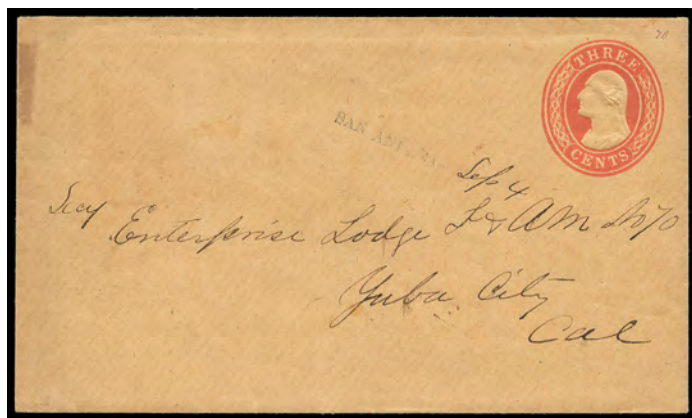 20
THREE
CENTS
SAN AN
Sep 4
Secy Enterprise Lodge F & AM No 70
Yuba City
Cal